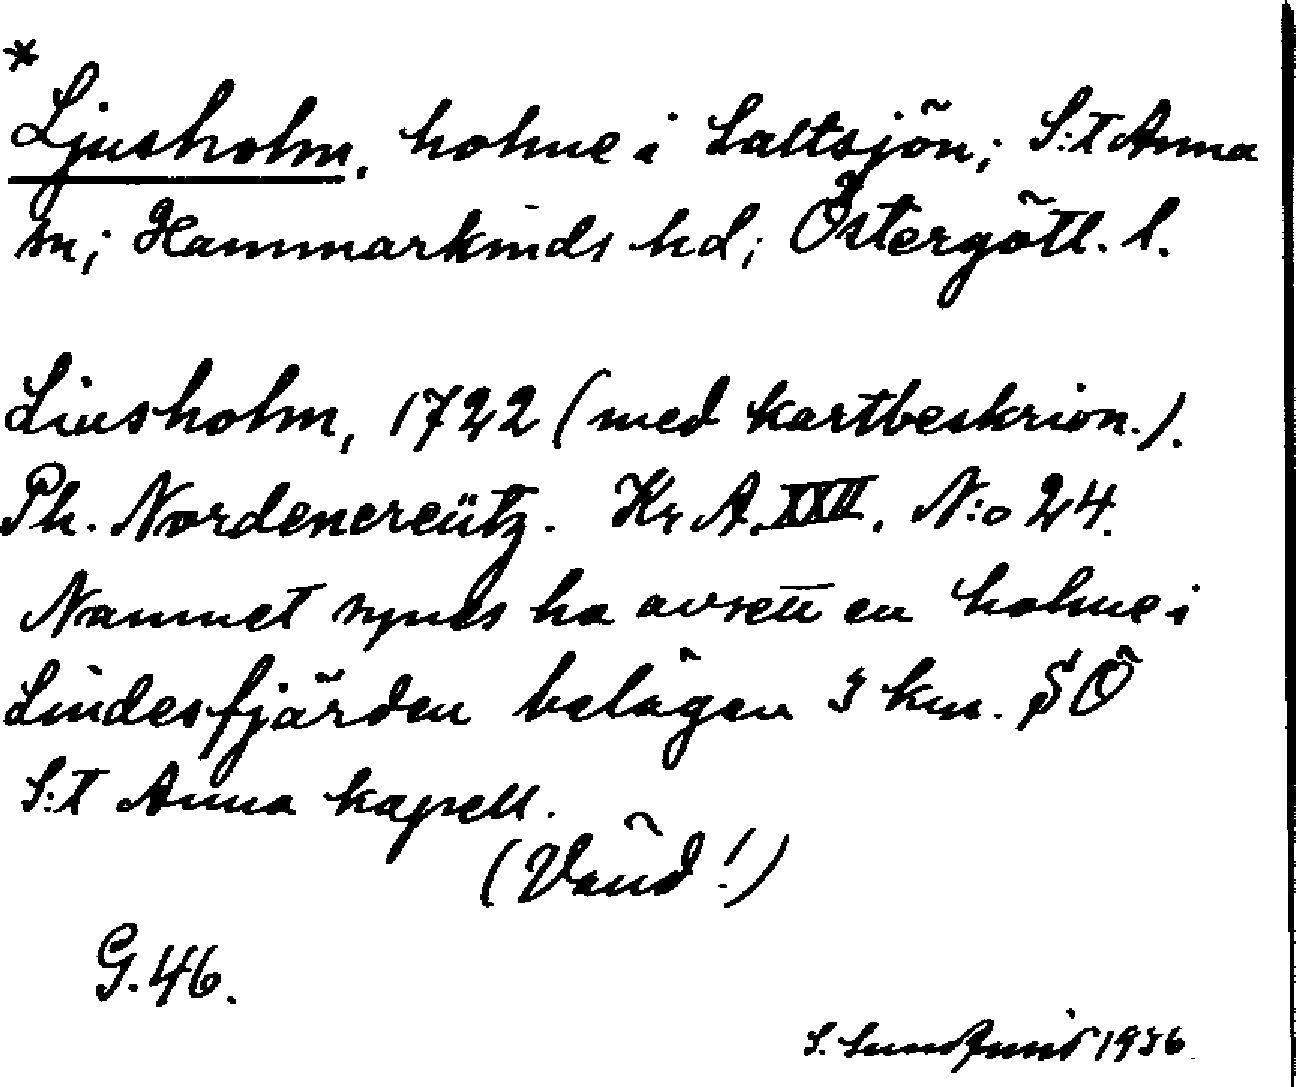 *
Ljusholm. holme i Saltsjön; S:t Anna
sn; Hammarkinds hd; Östergötl. l.
Liusholm, 1722 (med kartbeskrivn.).
Ph. Nordencreütz. Kr. A. XXII. N:o 24.
Namnet synes ha avsett en holme i
Lindesfjärden belägen 3 km. SÖ
S:t Anna kapell.
(Vänd!)
G.46.
S. 1936